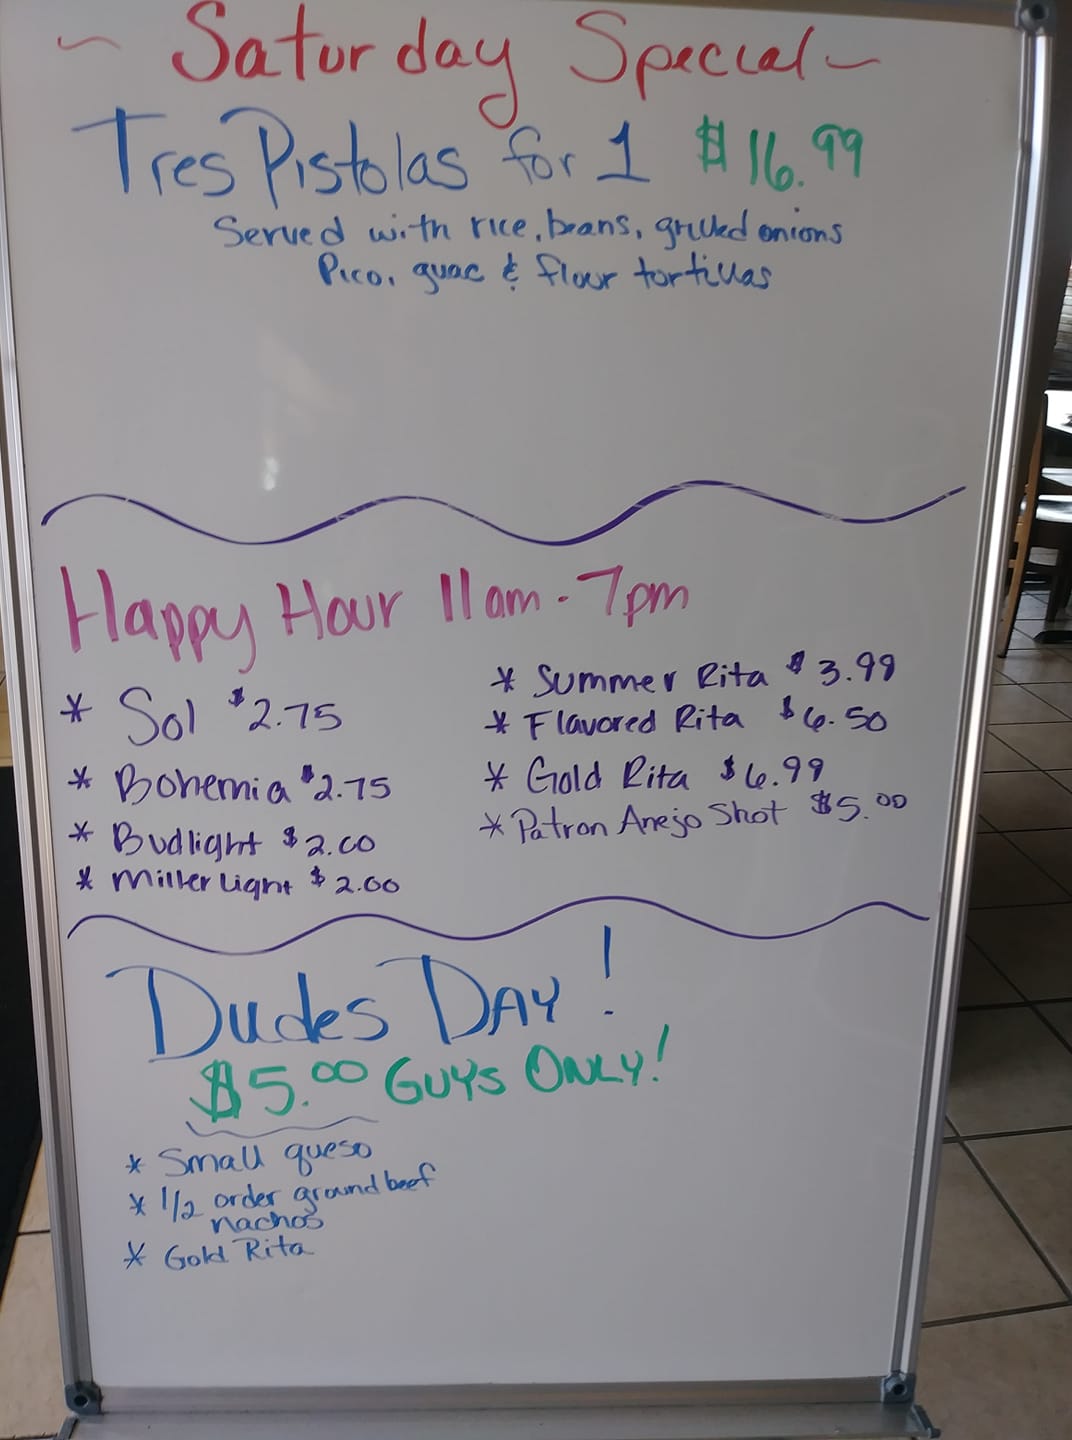 ~ Saturday Special ~
Tres Pistolas for 1 $16.99
Served with rice, beans, grilled onions
Pico, guac & flour tortillas
Happy Hour 11am - 7pm
* Sol $2.75
* Bohemia $2.75
* Budlight $2.00
* Miller Light $2.00
* Summer Rita $3.99
* Flavored Rita $6.50
* Gold Rita $6.99
* Patron Anejo Shot $5.00
Dudes DAY!
$5.00 GUYS ONLY!
* Small queso
* 1/2 order ground beef
nachos
* Gold Rita